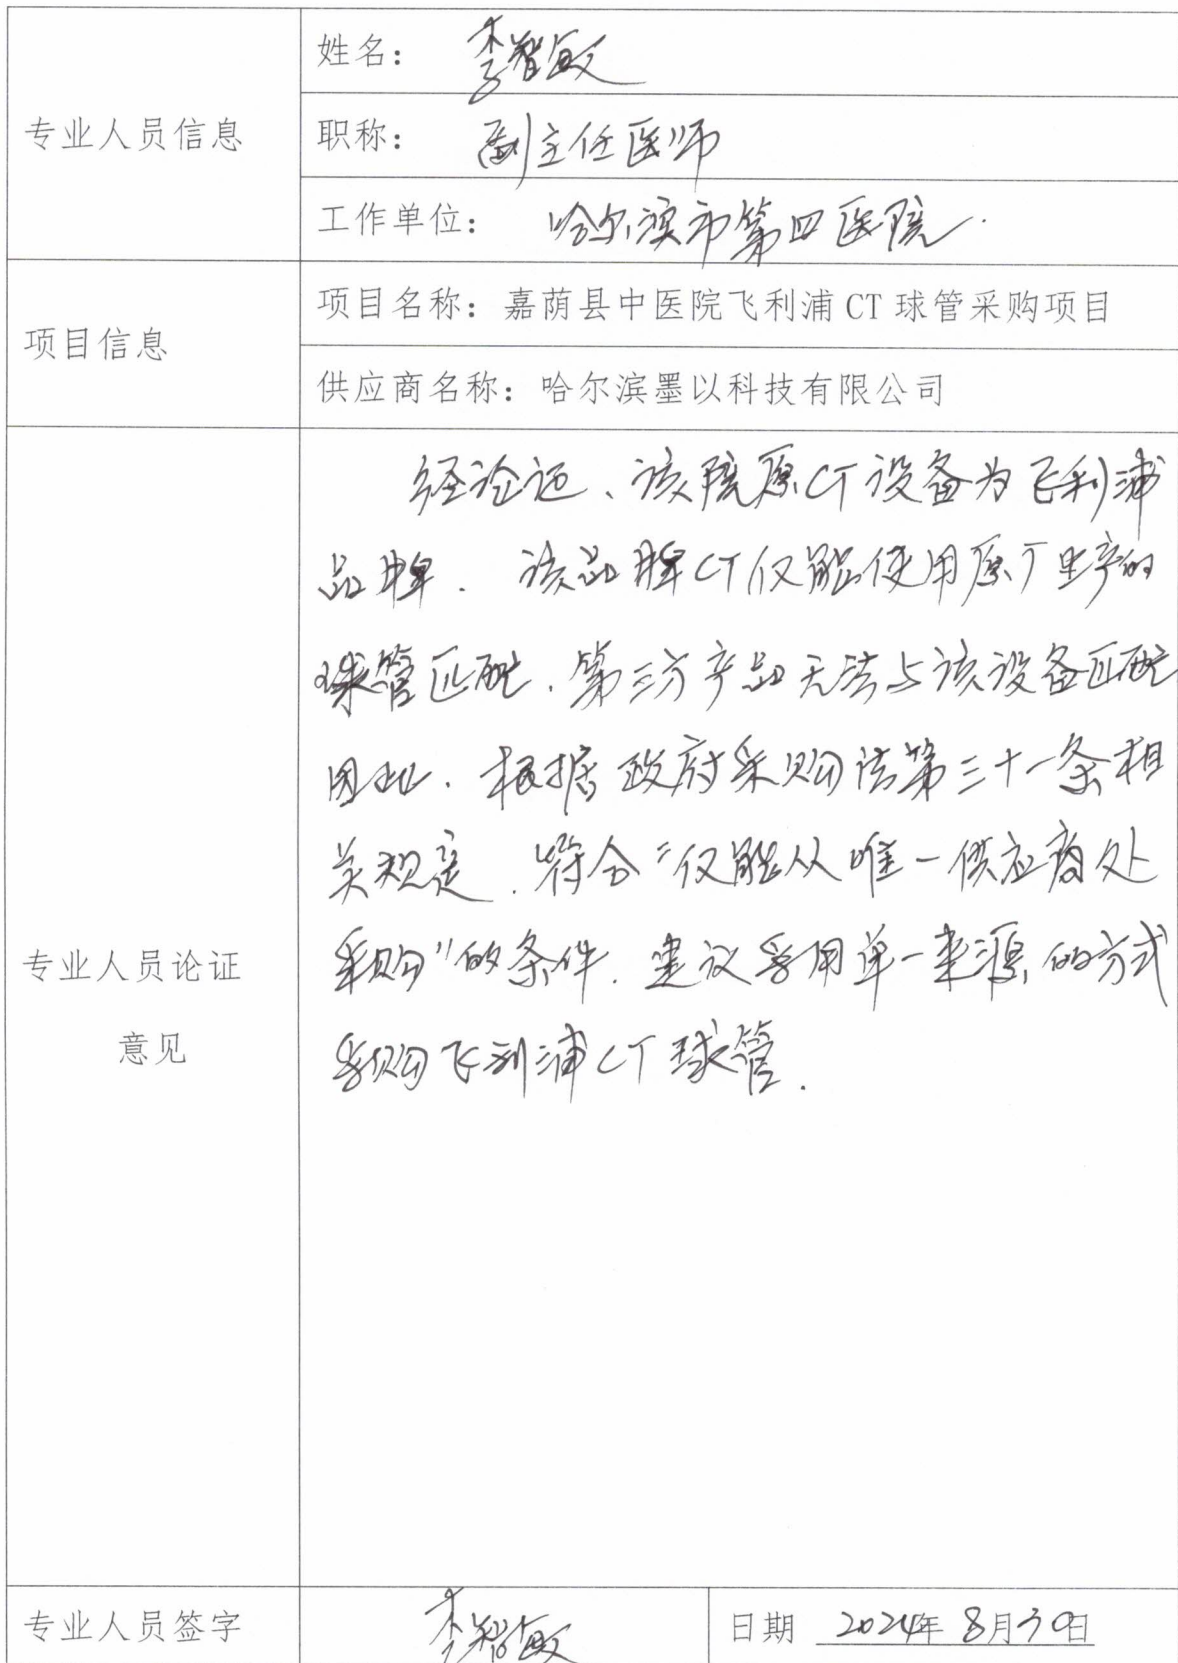 专业人员信息
姓名：李智敏
职称：副主任医师
工作单位：哈尔滨市第四医院.
项目信息
项目名称：嘉荫县中医院飞利浦 CT 球管采购项目
供应商名称：哈尔滨墨以科技有限公司
专业人员论证
意见
经论证、该院原CT设备为飞利浦
品牌. 该品牌CT仅能使用原厂生产的
球管匹配. 第三方产品无法与该设备匹配
因此. 根据政府采购法第三十一条相
关规定. 符合“仅能从唯一供应商处
采购”的条件. 建议采用单一来源的方式
采购飞利浦CT球管.
专业人员签字
李智敏
日期 2024年8月30日